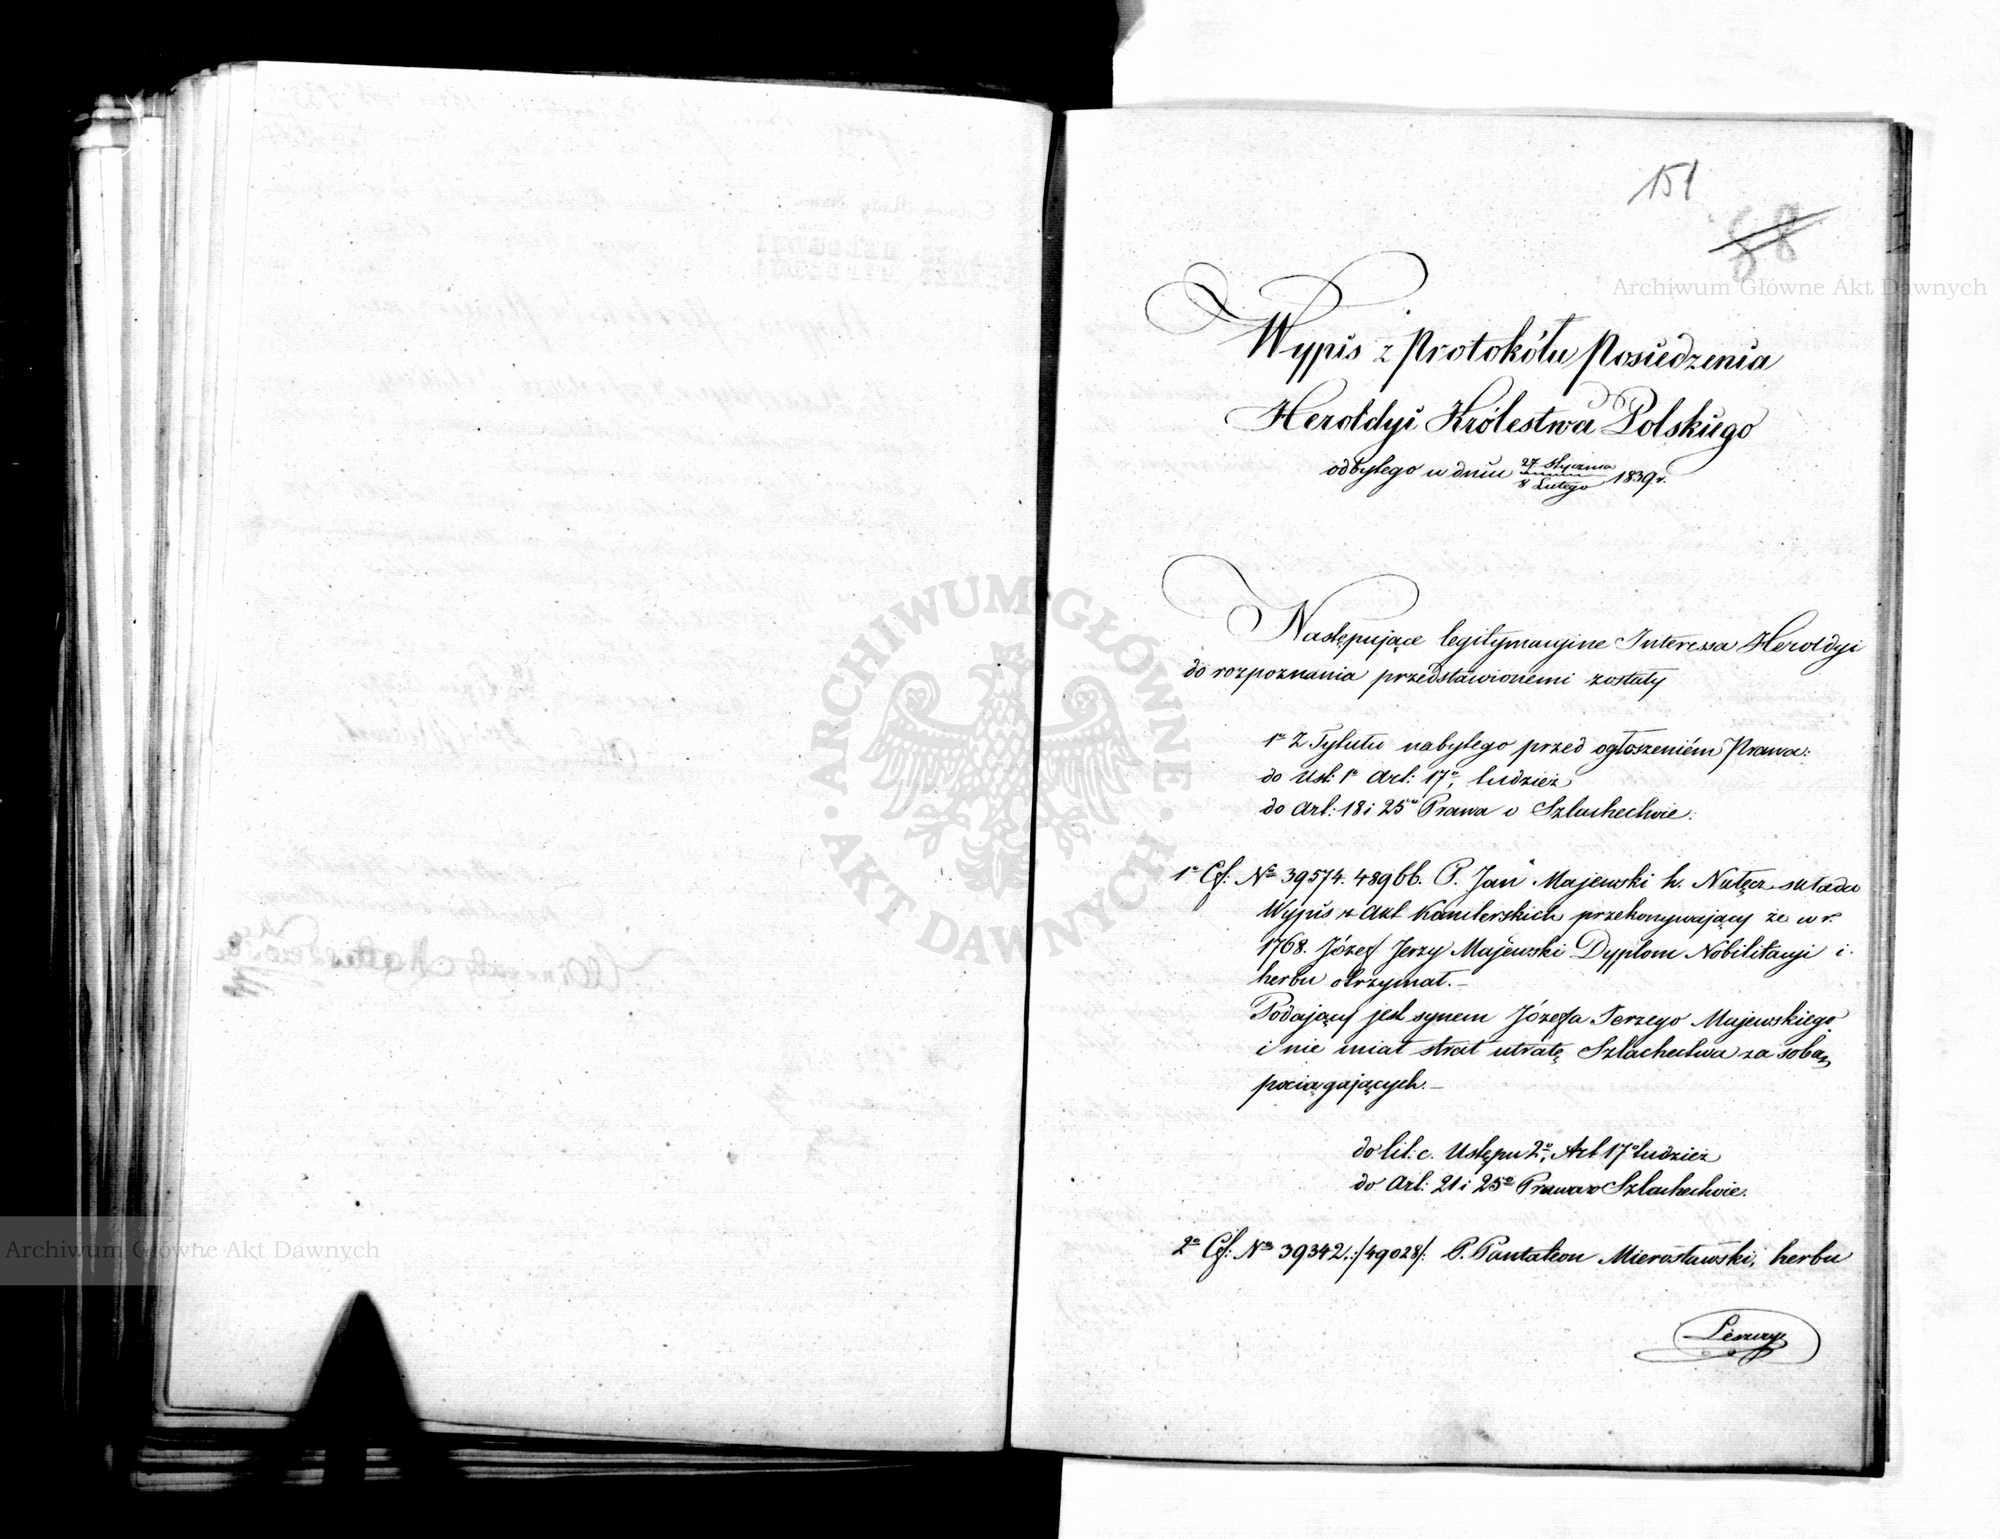 151
88
Wypis z Protokółu Posiedzenia
Heroldyi Królestwa Polskiego
odbytego w dniu 27 Stycznia / 8 Lutego 1839 r.
Następujące legitymacyjne Interessa Heroldyi
do rozpoznania przedstawionemi zostały
1º Z Tytułu nabytego przed ogłoszeniém Prawa:
do Ust: 1º Art: 17º, tudzież
do Art: 18 i 25º Prawa o Szlachectwie:
1º Cf: Nº 39574. 48966. P. Jan Majewski h. Nałęcz składa
Wypis z Akt Kanclerskich przekonywający że w r.
1768. Józef Jerzy Majewski Dyplom Nobilitacyi i
herbu otrzymał.—
Podający jest synem Józefa Jerzego Majewskiego
i nie miał strat utratę Szlachectwa za sobą
pociągających.—
do lit: c. Ustępu 2º, Art 17º tudzież
do Art: 21 i 25º Prawa o Szlachectwie.
2º Cf: Nº 39342.:/49028/: P. Pantaleon Mierosławski, herbu
Leszczyc
Archiwum Główne Akt Dawnych
ARCHIWUM GŁÓWNE
AKT DAWNYCH
Archiwum Główne Akt Dawnych